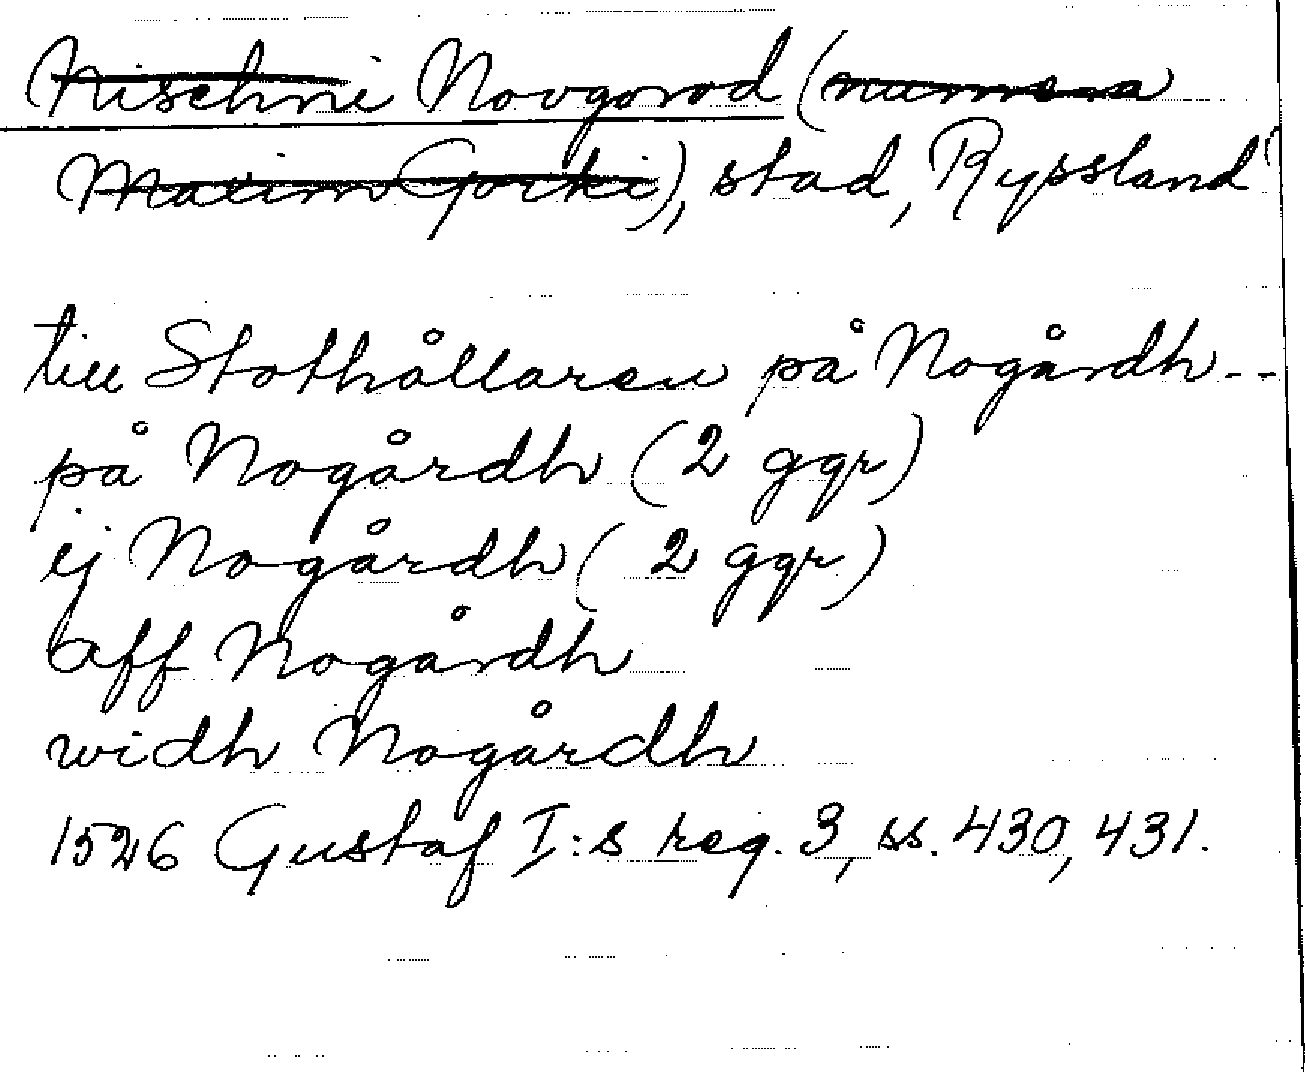 Nischni Novgorod (numera
Maxim Gorki), stad, Ryssland
till Stothållaren på Nogårdh --
på Nogårdh (2 ggr)
ij Nogårdh (2 ggr)
aff Nogårdh
widh Nogårdh
1526 Gustaf I:s reg. 3, ss. 430, 431.